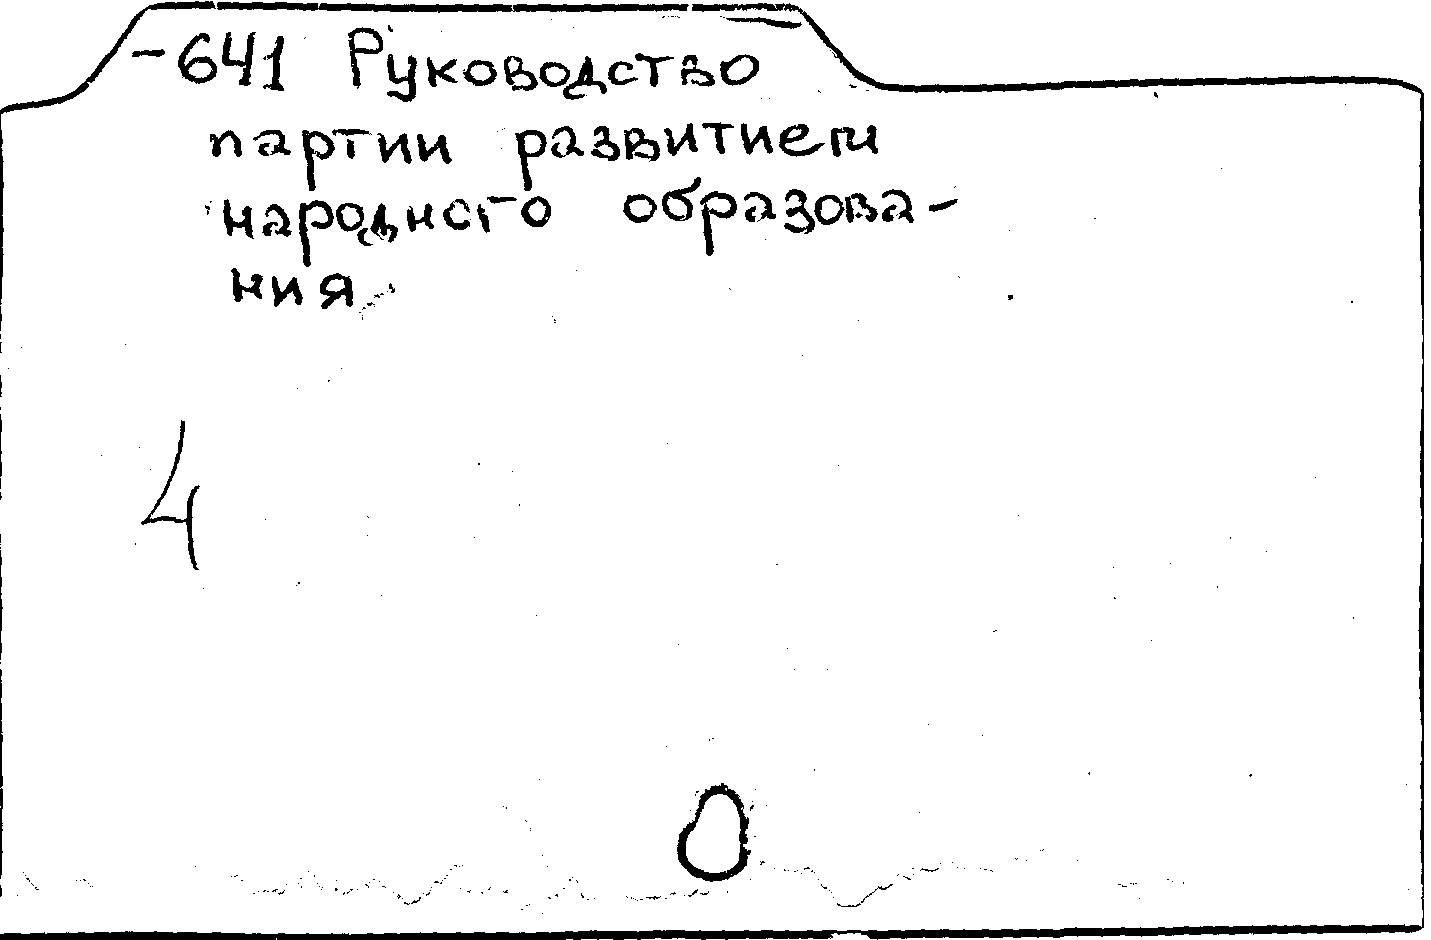 -641 Руководство
партии развитием
народного образова-
ния
4